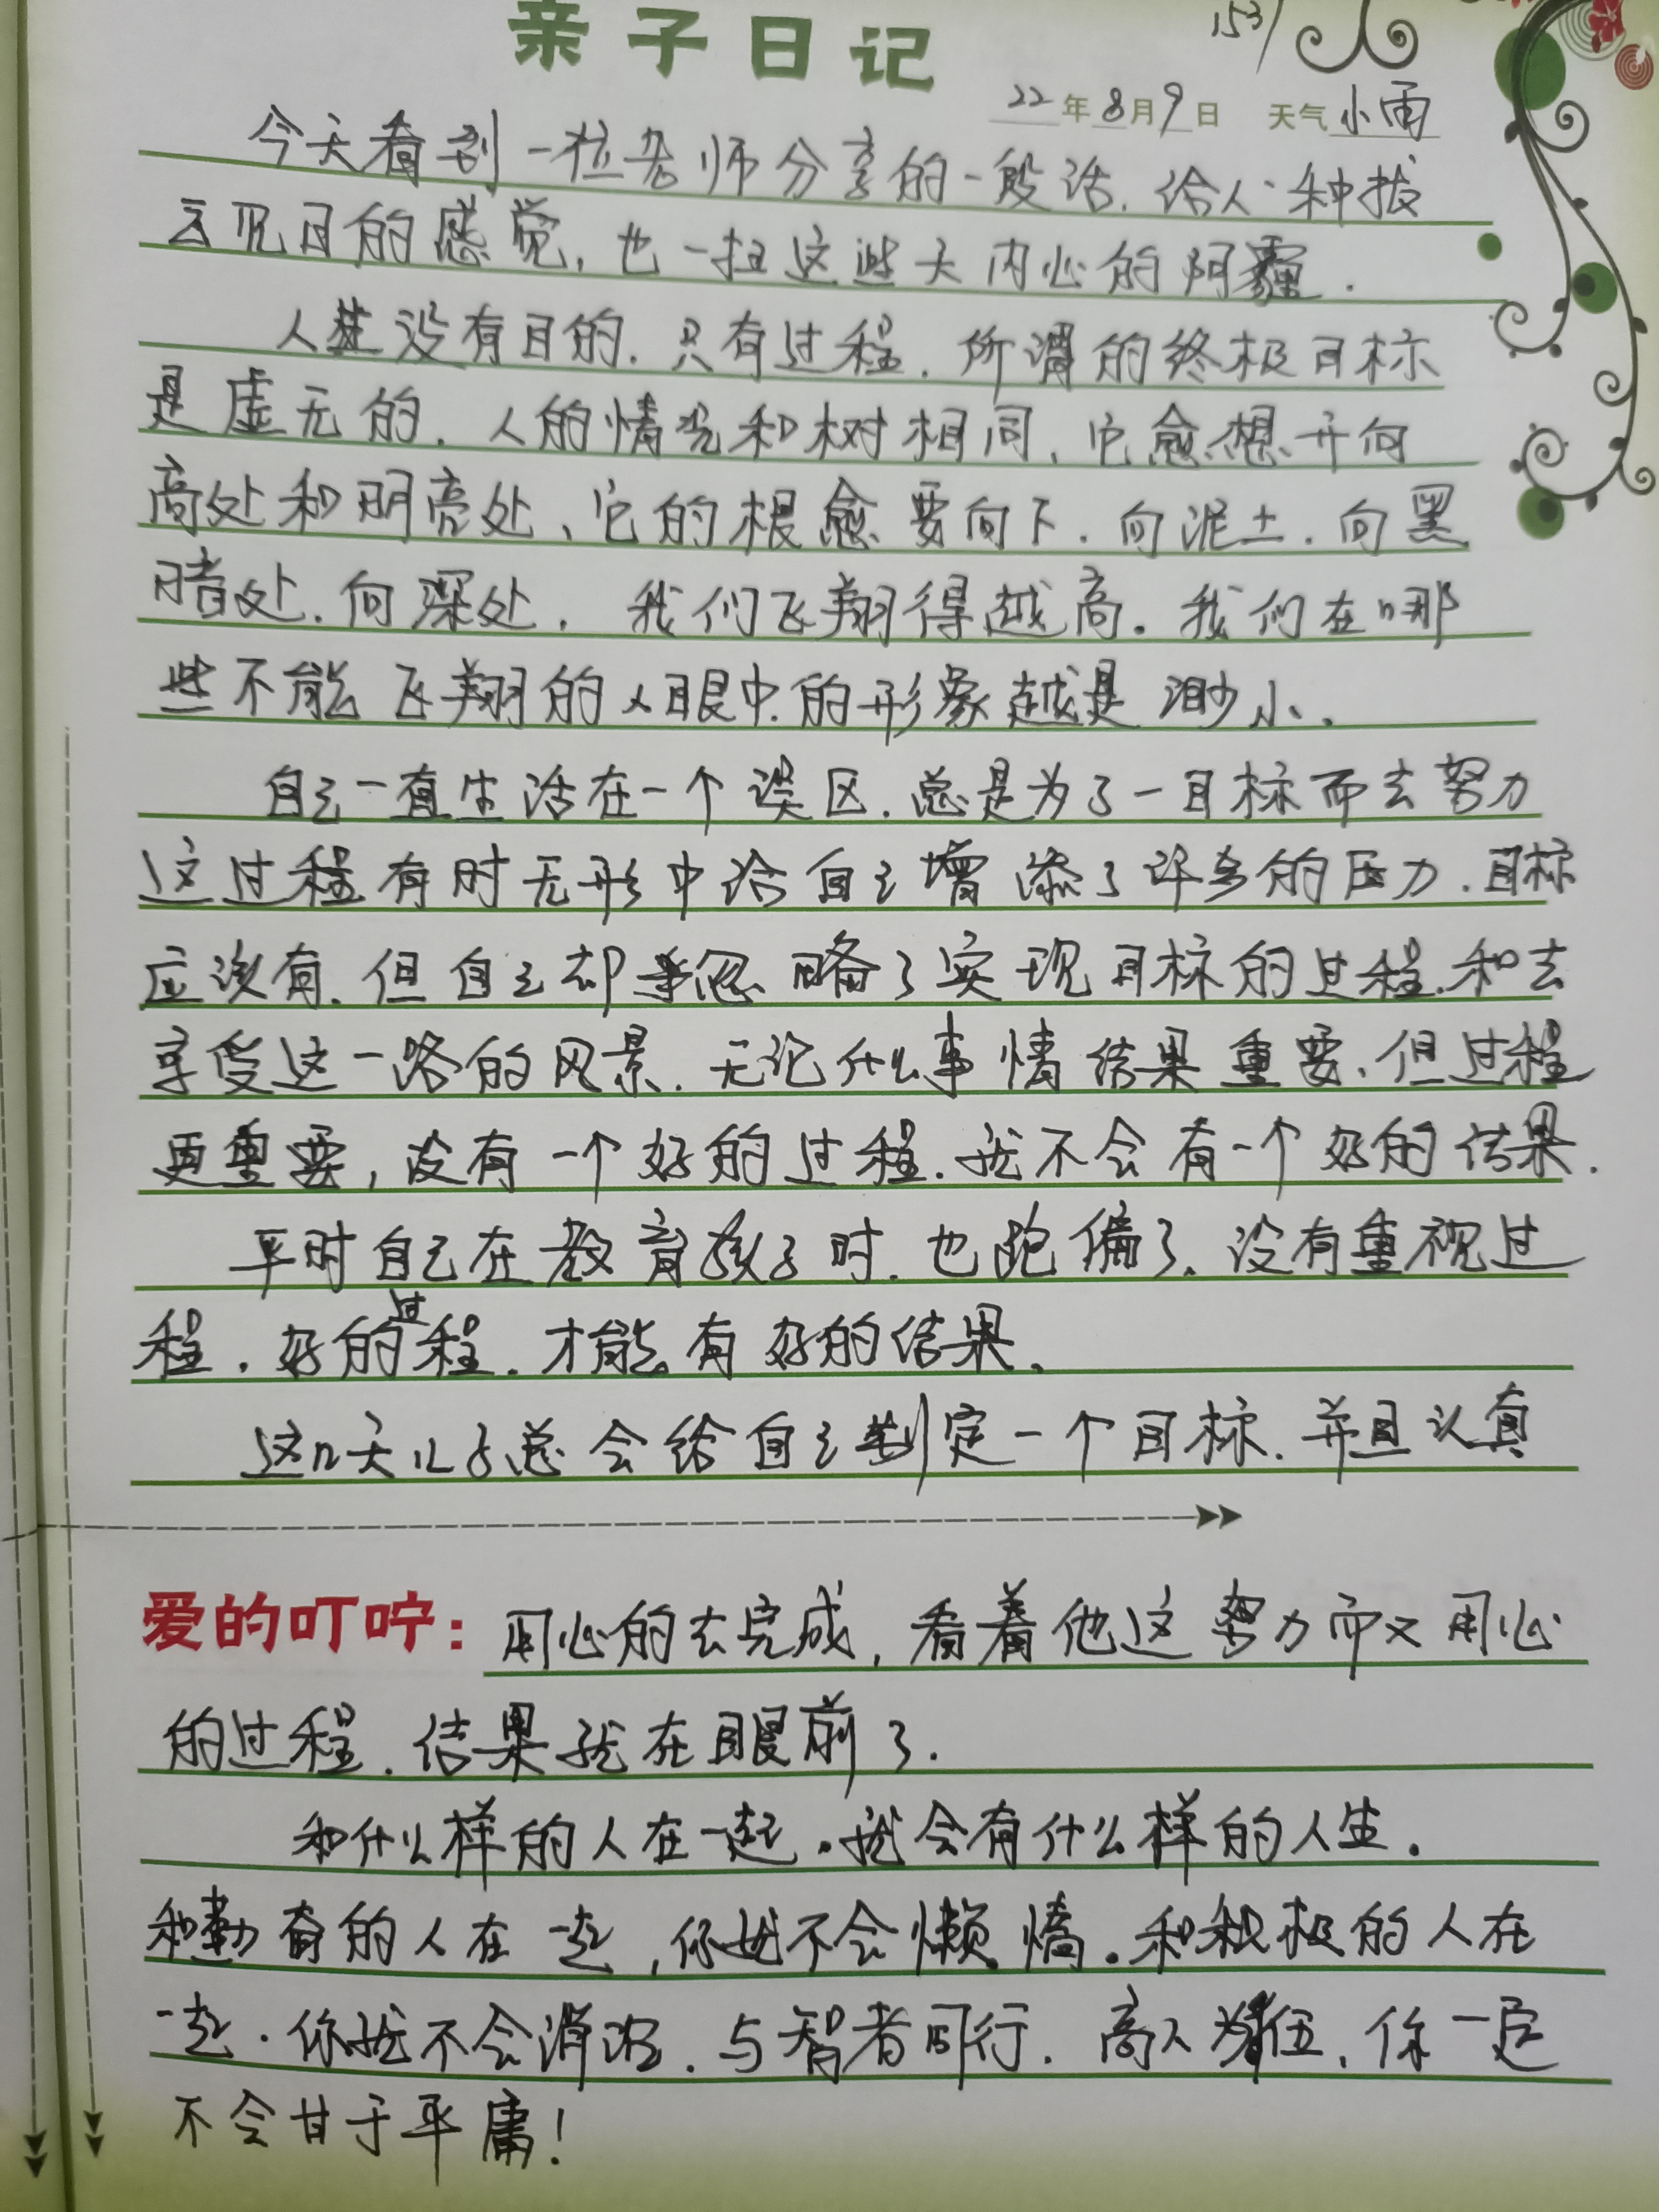 亲子日记
153
22年8月9日 天气 小雨
今天看到一位老师分享的一段话.给人一种拔
云见日的感觉,也一扫这些天内心的阴霾.
人生没有目的.只有过程.所谓的终极目标
是虚无的.人的情况和树相同,它愈想开向
高处和明亮处,它的根愈要向下.向泥土.向黑
暗处.向深处.我们飞翔得越高.我们在哪
些不能飞翔的人眼中的形象越是渺小.
自己一直生活在一个误区.总是为了一目标而去努力
这过程有时无形中给自己增添了许多的压力.目标
应该有.但自己却忽略了实现目标的过程.和去
享受这一路的风景.无论什么事情结果重要.但过程
更重要,没有一个好的过程.就不会有一个好的结果.
平时自己在教育孩子时.也跑偏了.没有重视过
程.好的过程.才能有好的结果.
这几天儿子总会给自己制定一个目标.并且认真
爱的叮咛:用心的去完成,看着他这努力而又用心
的过程.结果就在眼前了.
和什么样的人在一起.就会有什么样的人生.
和勤奋的人在一起,你就不会懒惰.和积极的人在
一起.你就不会消沉.与智者同行.高人为伍,你一定
不会甘于平庸!